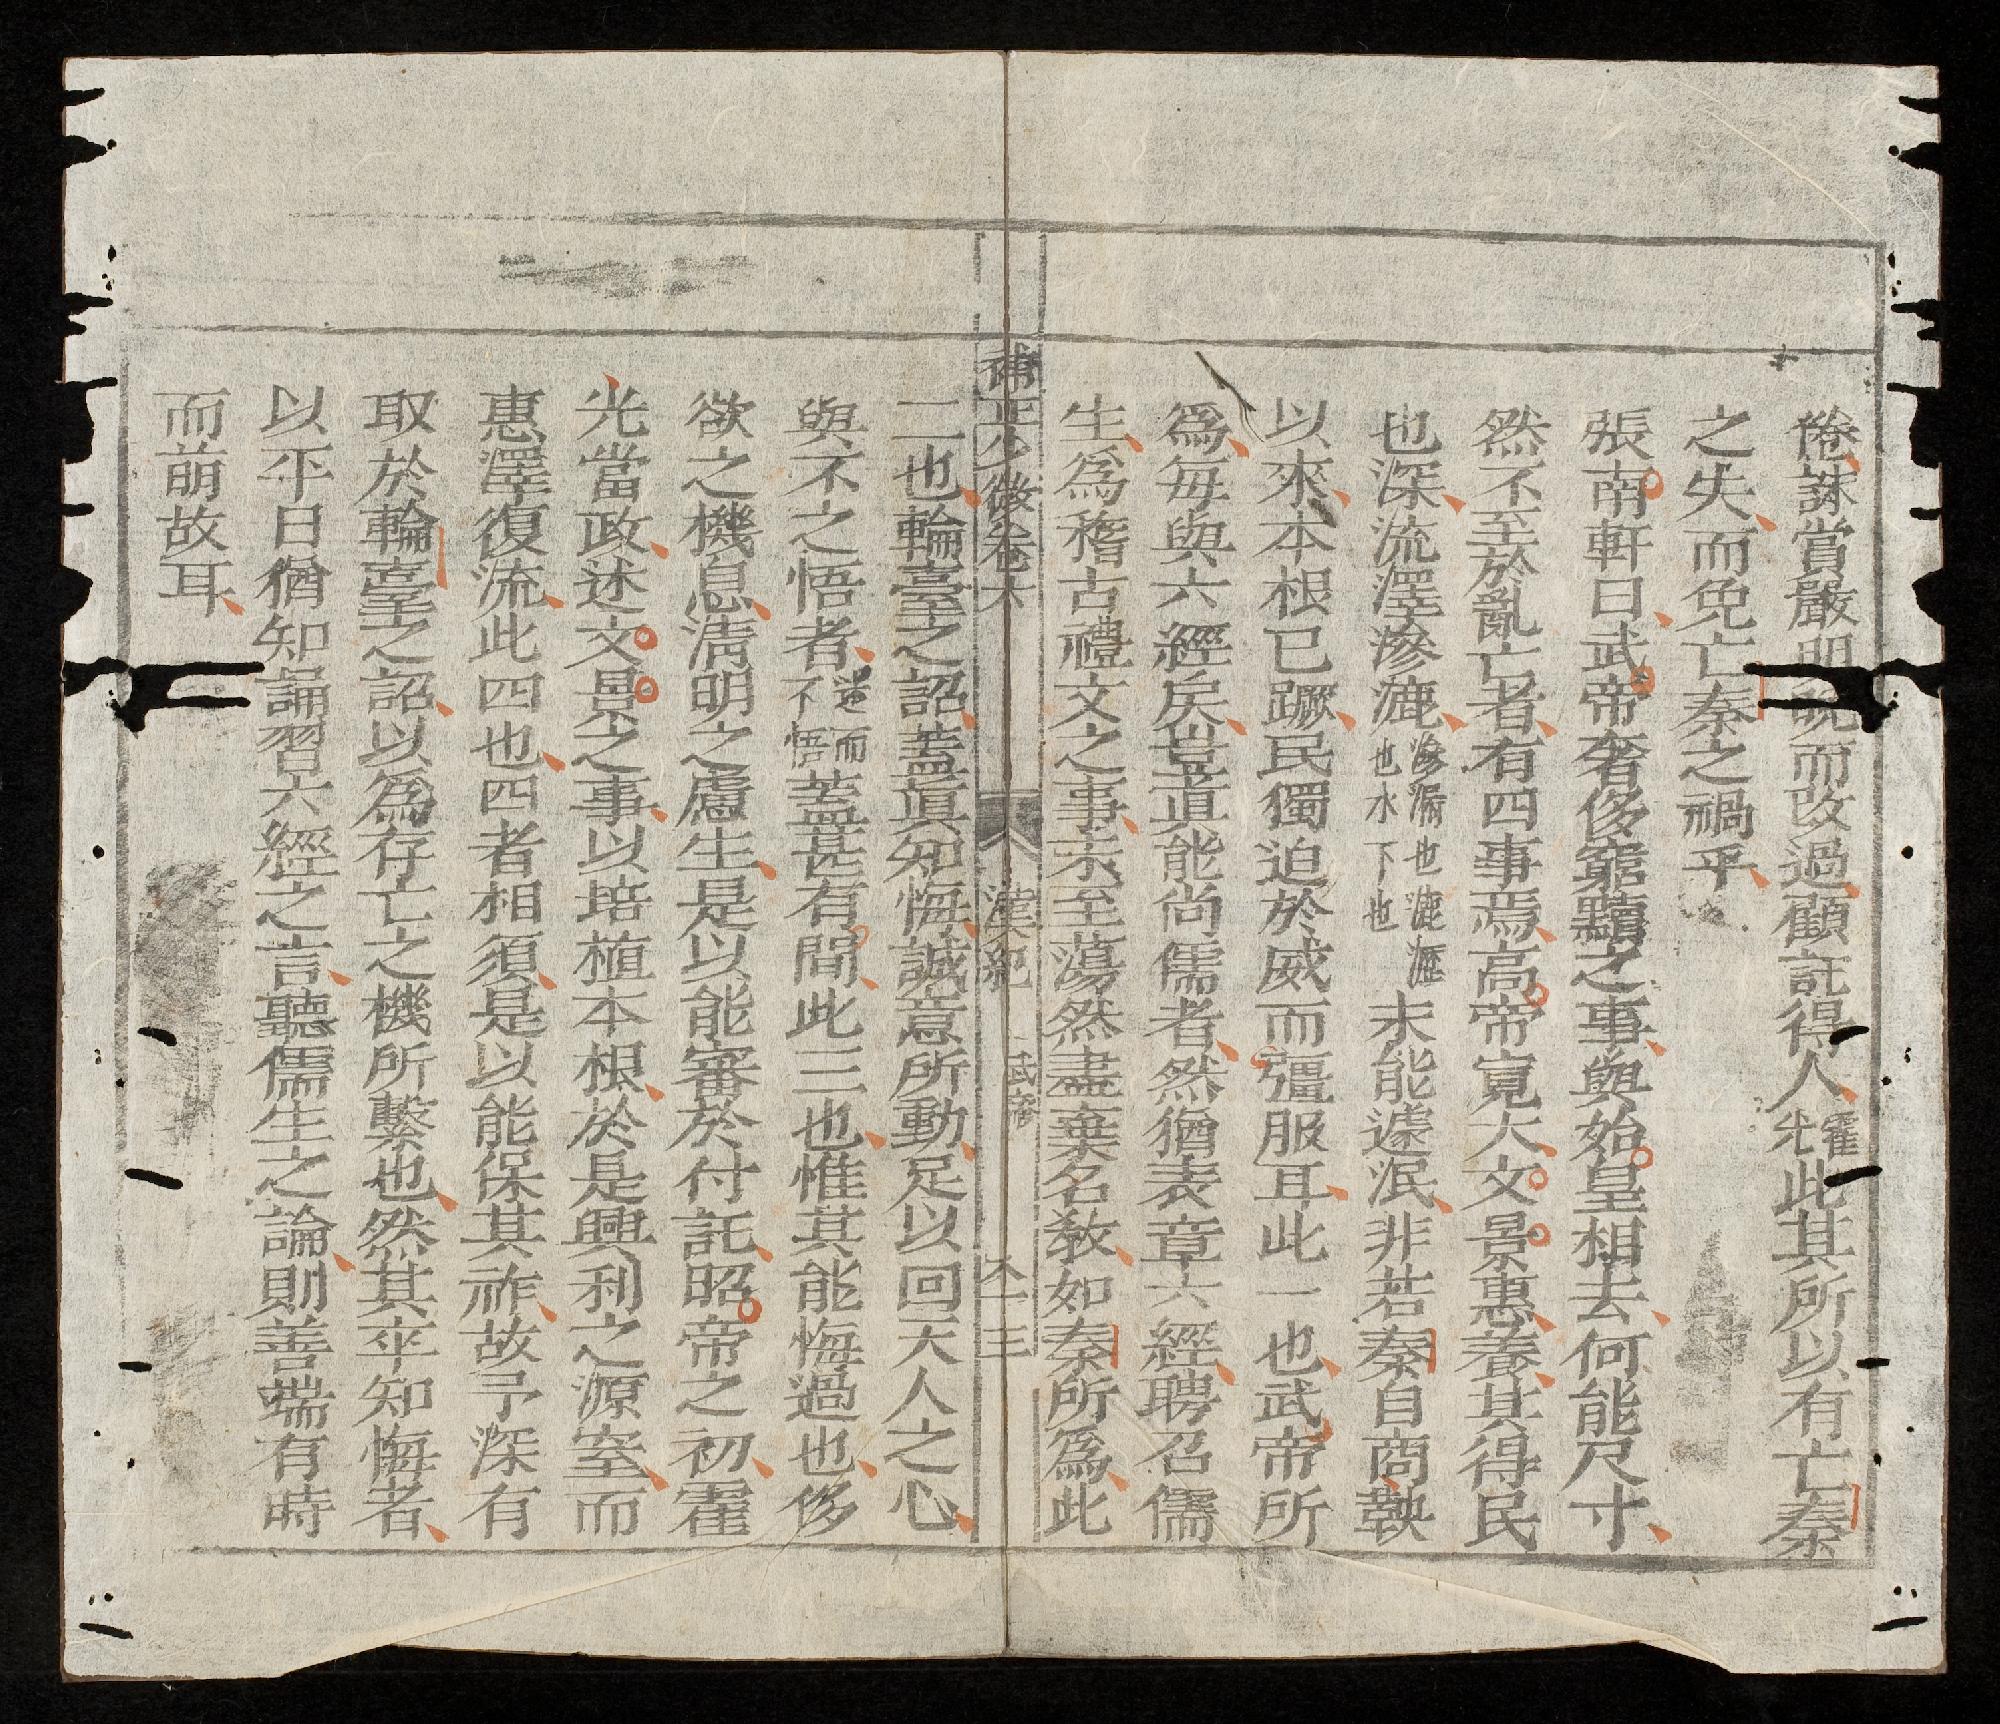 倦誅賞嚴明晚而改過顧託得人霍光此其所以有亡秦
之失而免亡秦之禍乎
張南軒曰武帝奢侈窮黷之事與始皇相去何能尺寸
然不至於亂亡者有四事焉高帝寬大文景惠養其得民
也深流澤滲漉滲漏也漉瀝也水下也末能遽泯非若秦自商鞅
以來本根已蹶民獨迫於威而彊服耳此一也武帝所
爲每與六經戾豈眞能尚儒者然猶表章六經聘召儒
生爲稽古禮文之事未至蕩然盡棄名敎如秦所爲此
補正少微卷六 漢紀 武帝 六十三
二也輪臺之詔蓋眞知悔誠意所動足以回天人之心
與不之悟者迷而不悟蓋甚有間此三也惟其能悔過也侈
欲之機息淸明之慮生是以能審於付託昭帝之初霍
光當政述文景之事以培植本根於是興利之源窒而
惠澤復流此四也四者相須是以能保其祚故予深有
取於輪臺之詔以爲存亡之機所繫也然其卒知悔者
以平日猶知誦習六經之言聽儒生之論則善端有時
而萌故耳